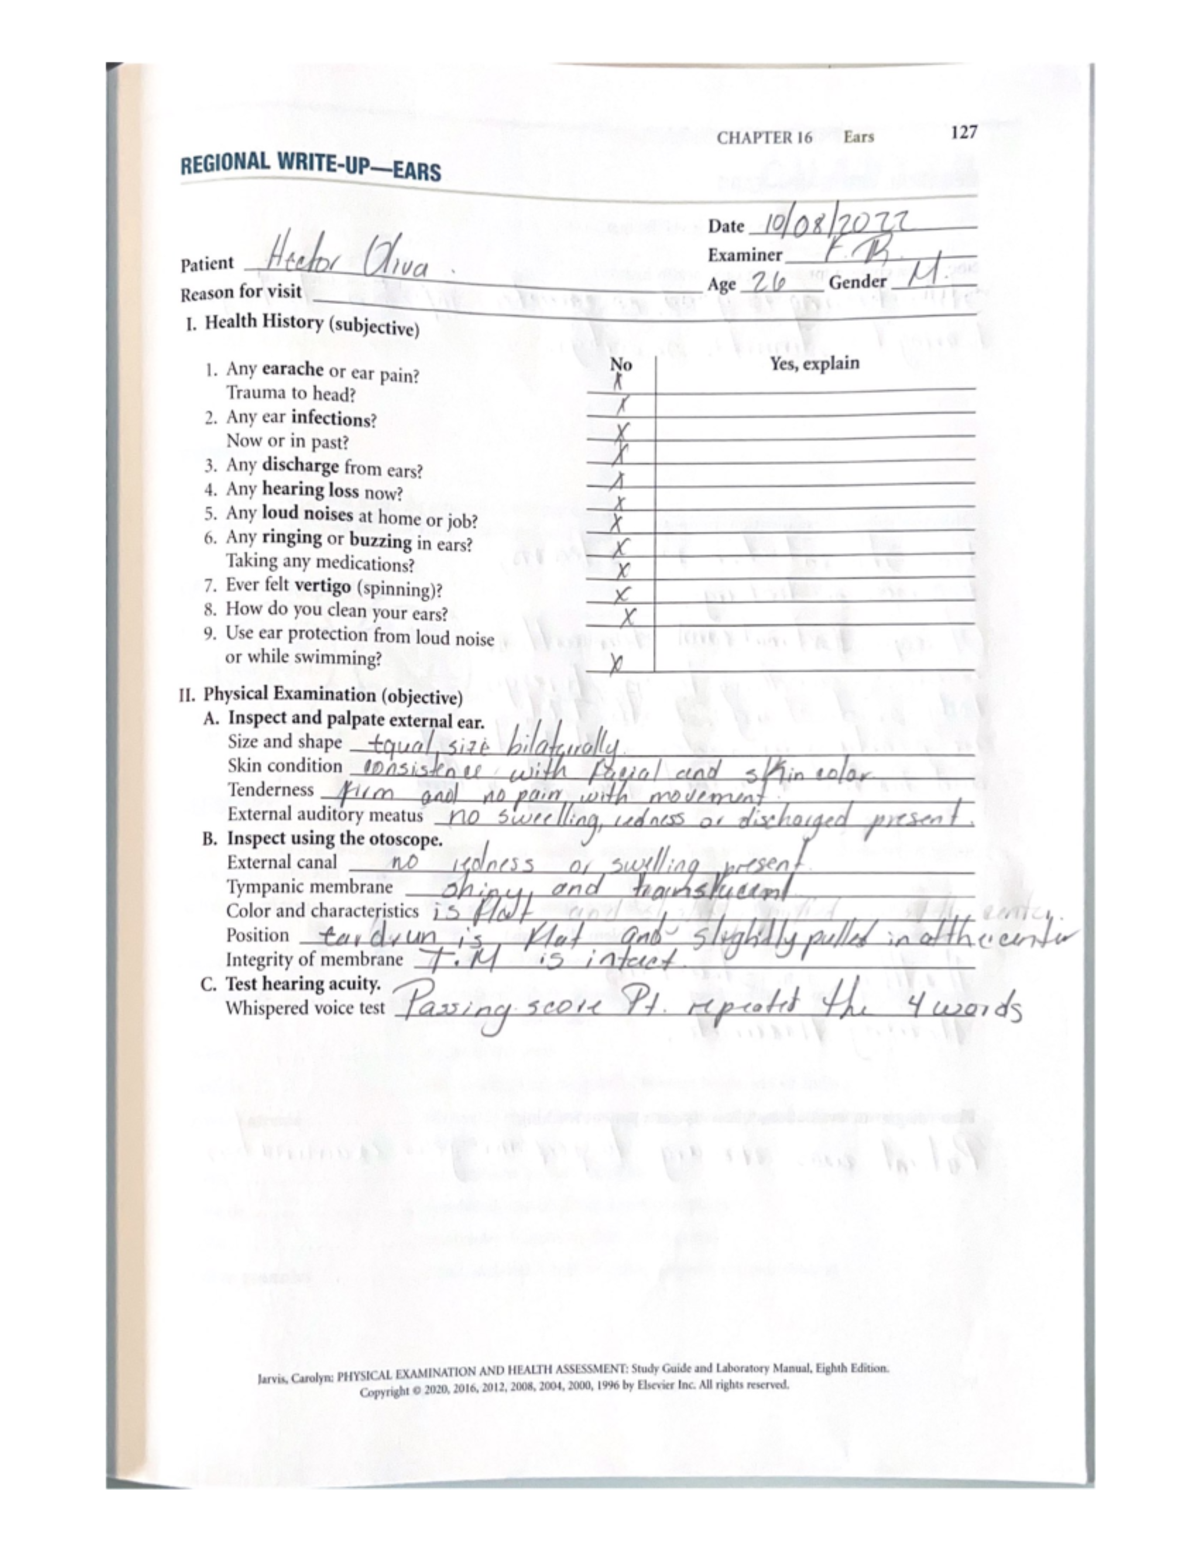 CHAPTER 16 Ears 127
REGIONAL WRITE-UP—EARS
Date 10/08/2022
Patient Hector Oliva. Examiner F. B.
Reason for visit Age 26 Gender M.
I. Health History (subjective)
No Yes, explain
1. Any earache or ear pain? X
Trauma to head? X
2. Any ear infections? X
Now or in past? X
3. Any discharge from ears? X
4. Any hearing loss now? X
5. Any loud noises at home or job? X
6. Any ringing or buzzing in ears? X
Taking any medications? X
7. Ever felt vertigo (spinning)? X
8. How do you clean your ears? X
9. Use ear protection from loud noise
or while swimming? X
II. Physical Examination (objective)
A. Inspect and palpate external ear.
Size and shape Equal size bilaterally.
Skin condition consistence with facial and skin color
Tenderness firm and no pain with movement.
External auditory meatus no sweelling, redness or discharged present.
B. Inspect using the otoscope.
External canal no redness or swelling present
Tympanic membrane shiny, and translucent
Color and characteristics is flat and center.
Position eardrun is flat and slightly pulled in at the center
Integrity of membrane T.M is intact.
C. Test hearing acuity.
Whispered voice test Passing score Pt. repeated the 4 words
Jarvis, Carolyn: PHYSICAL EXAMINATION AND HEALTH ASSESSMENT: Study Guide and Laboratory Manual, Eighth Edition.
Copyright © 2020, 2016, 2012, 2008, 2004, 2000, 1996 by Elsevier Inc. All rights reserved.